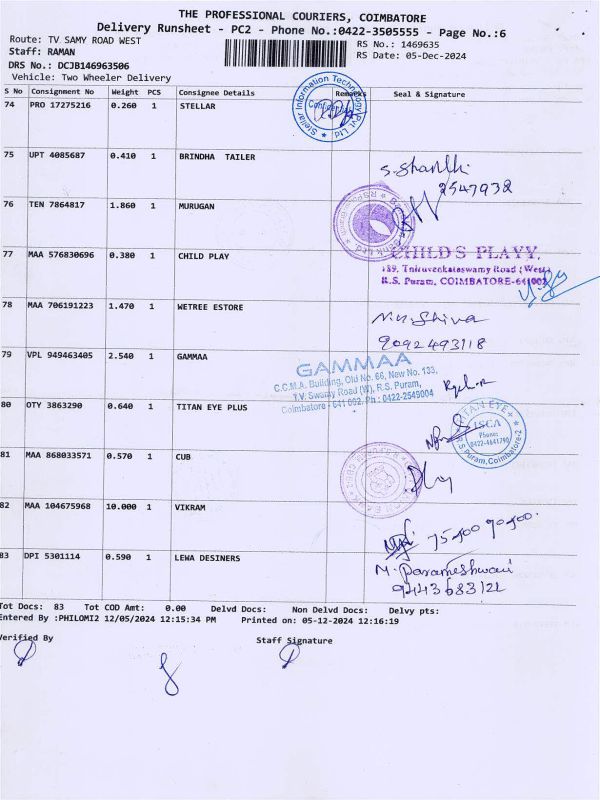 THE PROFESSIONAL COURIERS, COIMBATORE
Delivery Runsheet - PC2 - Phone No.:0422-3505555 - Page No.:6
Route: TV SAMY ROAD WEST
RS No.: 1469635
Staff: RAMAN
RS Date: 05-Dec-2024
DRS No.: DCJB146963506
Vehicle: Two Wheeler Delivery
S No Consignment No Weight PCS Consignee Details Remarks Seal & Signature
74 PRO 17275216 0.260 1 STELLAR
Stellar Information Technology Pvt Ltd
75 UPT 4085687 0.410 1 BRINDHA TAILER
S. Shanthi
2547932
76 TEN 7864817 1.860 1 MURUGAN
77 MAA 576830696 0.380 1 CHILD PLAY
CHILD'S PLAYY,
189, Thiruvenkataswamy Road (West)
R.S. Puram, COIMBATORE-641002
78 MAA 706191223 1.470 1 WETREE ESTORE
9092493118
79 VPL 949463405 2.540 1 GAMMAA
GAMMAA
C.C.M.A. Building, Old No. 66, New No. 133,
T.V. Swamy Road (W), R.S. Puram,
Coimbatore - 641 002. Ph : 0422-2545004
80 OTY 3863290 0.640 1 TITAN EYE PLUS
TITAN EYE+
ISCA
Phone:
R.S Puram, Coimbatore-2
81 MAA 868033571 0.570 1 CUB
82 MAA 104675968 10.000 1 VIKRAM
83 DPI 5301114 0.590 1 LEWA DESINERS
M. Parameshwari
9443683122
Tot Docs: 83 Tot COD Amt: 0.00 Delvd Docs: Non Delvd Docs: Delvy pts:
Entered By :PHILOMI2 12/05/2024 12:15:34 PM Printed on: 05-12-2024 12:16:19
Verified By Staff Signature